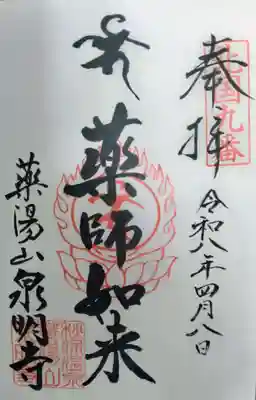 奉拝
令和八年四月八日
薬師如来
薬湯山泉明寺